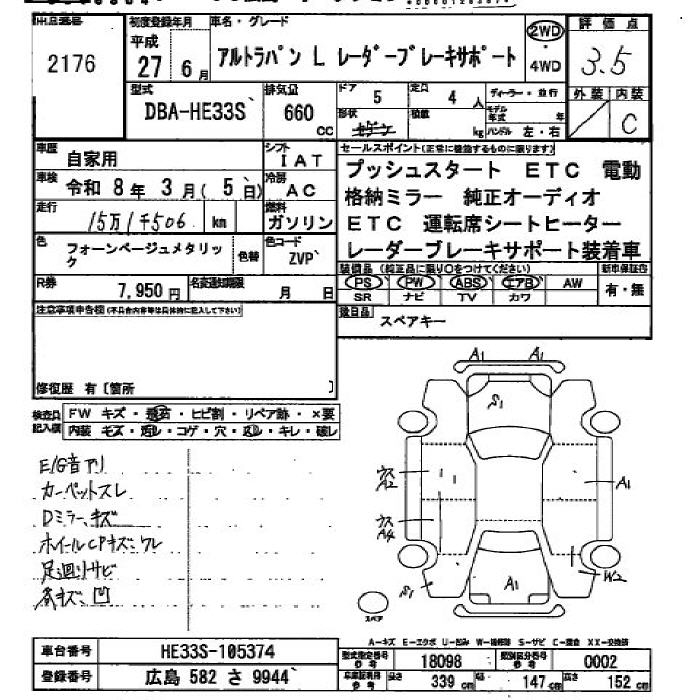 2176
初度登録年月
平成
27 6月
車名・グレード
アルトラパン L レーダーブレーキサポート
2WD
4WD
評価点
3.5
型式
DBA-HE33S
排気量
660
cc
ドア 5
定員 4 人
形状
積載 kg
ディーラー・並行
モデル年式 年
ハンドル 左・右
外装
内装
C
車歴
自家用
シフト
IAT
車検
令和 8年 3月(5日)
冷房
AC
走行
15万1千506 km
燃料
ガソリン
色
フォーンベージュメタリック
色替
色コード
ZVP
R券
7,950円
名変通知期限
月 日
セールスポイント(正常に機能するものに限ります)
プッシュスタート ETC 電動
格納ミラー 純正オーディオ
ETC 運転席シートヒーター
レーダーブレーキサポート装着車
装備品(純正品に限り○をつけてください)
新車保証書
PS PW ABS エアB AW
SR ナビ TV カワ
有・無
後日品
スペアキー
注意事項申告欄(不具合内容等は具体的に記入して下さい)
修復歴 有〔箇所 〕
検査員記入欄
FW キズ・飛石・ヒビ割・リペア跡・×要
内装 キズ・汚レ・コゲ・穴・凹・キレ・破レ
E/G音アリ
カーペットスレ
Dミラーキズ
ホイールCPキズ・ワレ
足廻りサビ
各キズ凹
A1 A1
S1
ウス A2
A1
ウス A4
S1
A1
W2
スペア
A-キズ E-エクボ U-凹み W-補修跡 S-サビ C-腐食 XX-交換済
車台番号
HE33S-105374
登録番号
広島 582 さ 9944
型式指定番号 参考
18098
類別区分番号 参考
0002
車庫証明用 参考
長さ 339 cm
幅 147 cm
高さ 152 cm